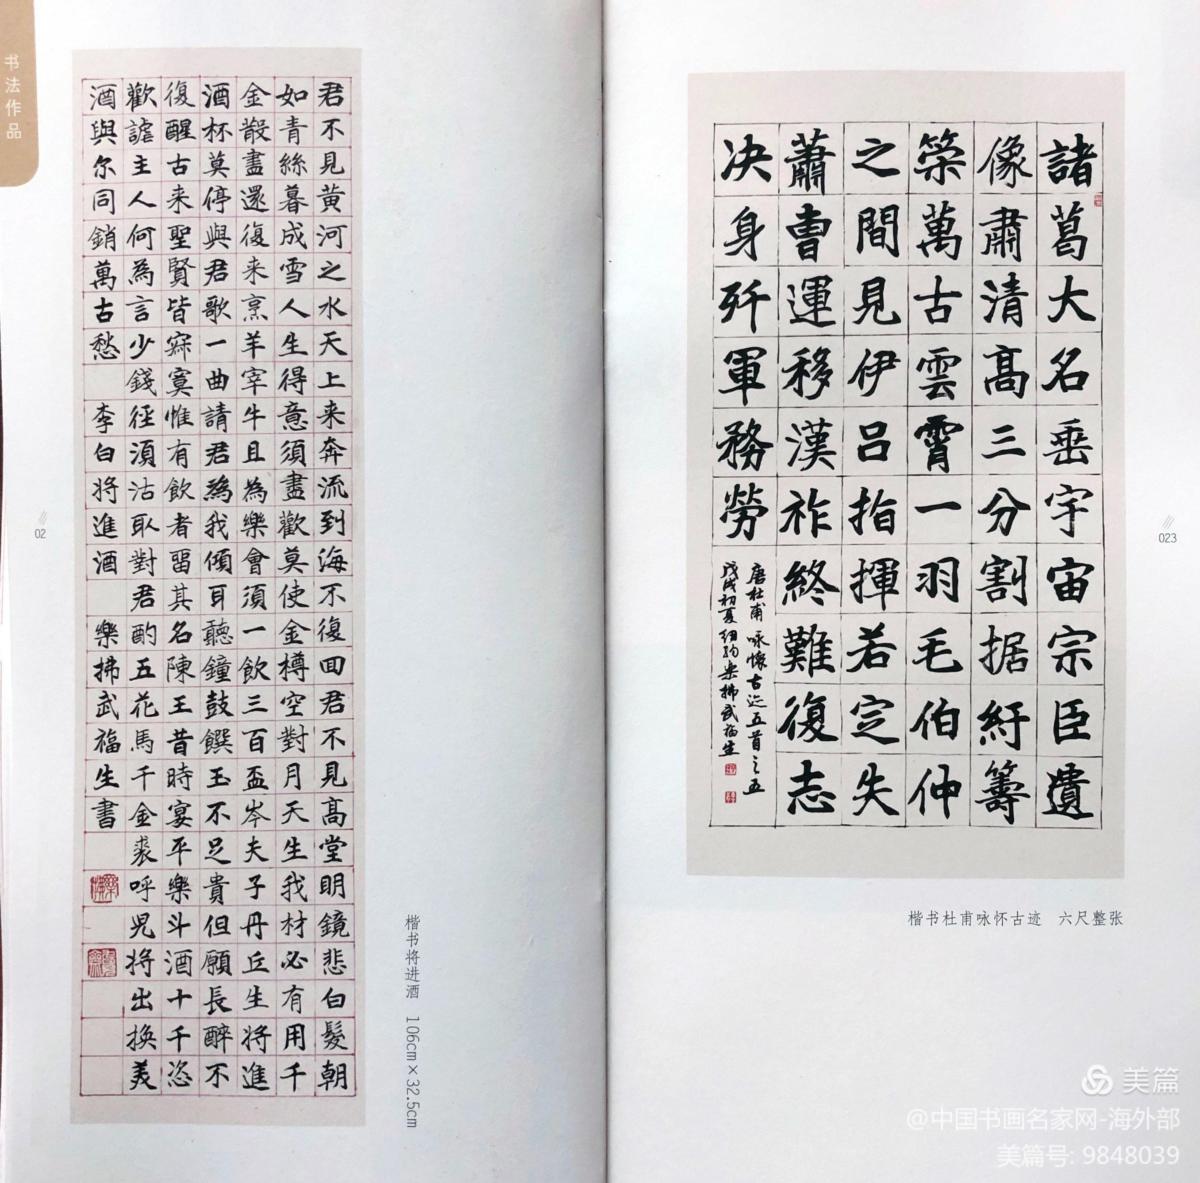 书法作品
君不見黄河之水天上来奔流到海不復回君不見高堂明鏡悲白髮朝
如青絲暮成雪人生得意須盡歡莫使金樽空對月天生我材必有用千
金散盡還復来烹羊宰牛且為樂會須一飲三百盃岑夫子丹丘生将進
酒杯莫停與君歌一曲請君為我傾耳聽鐘鼓饌玉不足貴但願長醉不
復醒古来聖賢皆寂寞惟有飲者留其名陳王昔時宴平樂斗酒十千恣
歡謔主人何為言少錢徑須沽取對君酌五花馬千金裘呼児将出換美
酒與尔同銷萬古愁 李白将進酒 樂拂武福生書
楷书将进酒 106cm×32.5cm
02
諸葛大名垂宇宙宗臣遺
像肅清高三分割据紆籌
築萬古雲霄一羽毛伯仲
之間見伊吕指揮若定失
蕭曹運移漢祚終難復志
决身歼軍務勞
唐杜甫咏懷古迹五首之五
戊戌初夏纽约樂拂武福生
023
楷书杜甫咏怀古迹 六尺整张
美篇
@中国书画名家网-海外部
美篇号: 9848039